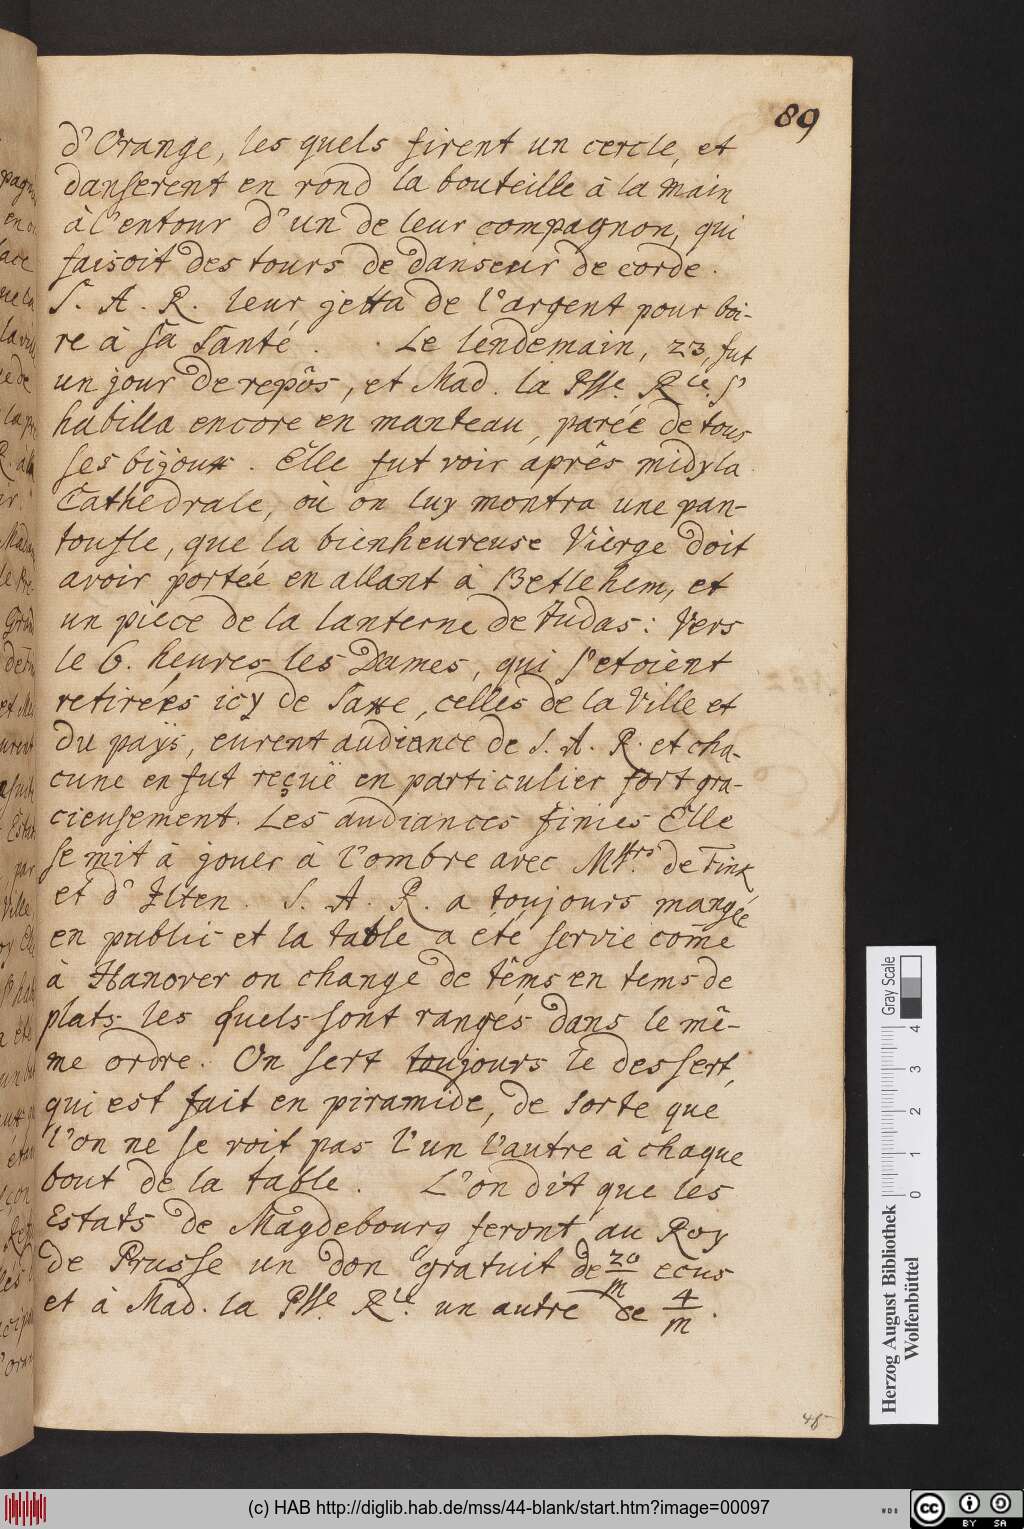 89
d'Orange, les quels firent un cercle, et
danserent en rond la bouteille à la main
à l'entour d'un de leur compagnon, qui
faisoit des tours de danseur de corde.
S. A. R. leur jetta de l'argent pour boi-
re à sa santé. Le lendemain, 23, fut
un jour de repôs, et Mad. la Psse. Rle. s'
habilla encore en manteau, parée de tous
ses bijoux. Elle fut voir aprês midy la
Cathedrale, où on luy montra une pan-
toufle, que la bienheureuse Vierge doit
avoir portée en allant à Betlehem, et
un piece de la lanterne de Judas: Vers
le 6. heures les Dames, qui s'etoient
retirées icy de Saxe, celles de la Ville et
du païs, eurent audiance de S. A. R. et cha-
cune en fut reçuë en particulier fort gra-
cieusement. Les audiances finies Elle
se mit à jouer à l'ombre avec Mssrs. de Fink
et d'Ilten. S. A. R. a toujours mangée
en public et la table a été servie com̄e
à Hanover on change de têms en tems de
plats les quels sont rangés dans le mê-
me ordre. On sert toujours le dessert,
qui est fait en piramide, de sorte que
l'on ne se voit pas l'un l'autre à chaque
bout de la table. L'on dit que les
Estats de Magdebourg feront au Roy
de Prusse un don gratuit de 20/m ecus
et à Mad. la Psse. Rle. un autre de 4/m.
48
Gray Scale
0 1 2 3 4
Herzog August Bibliothek
Wolfenbüttel
(c) HAB http://diglib.hab.de/mss/44-blank/start.htm?image=00097
WDB
cc BY SA